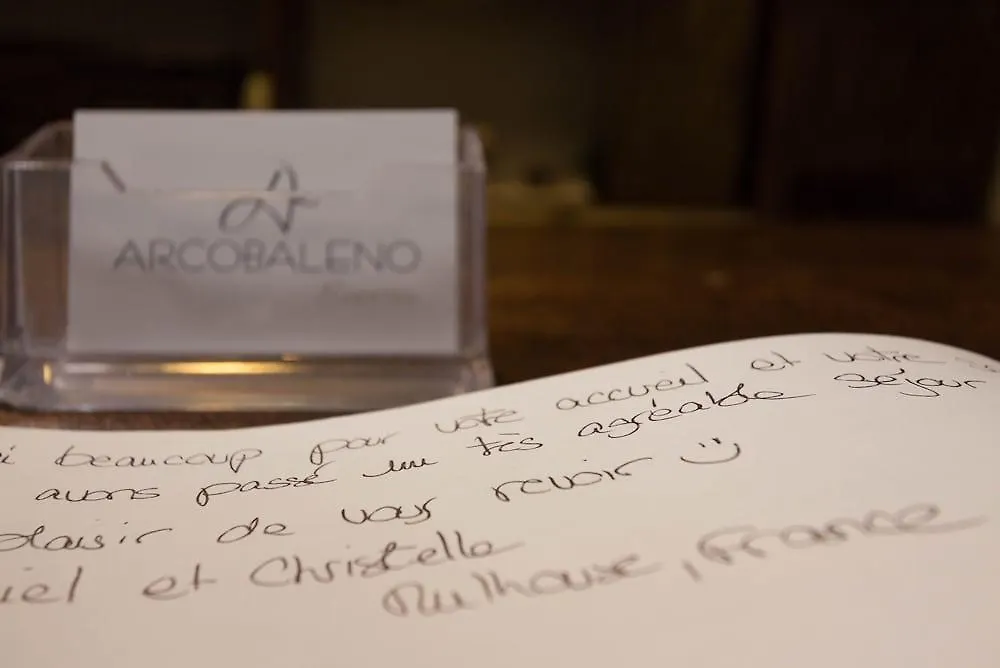 ARCOBALENO
beaucoup pour votre accueil et votre
avons passé un très agréable séjour
plaisir de vous revoir :)
et Christelle
Mulhouse, France